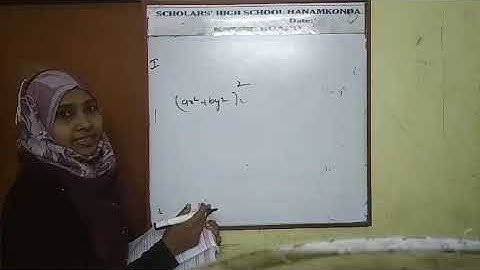 SCHOLARS' HIGH SCHOOL HANAMKONDA
Date:
I
(ax²+by²)²=